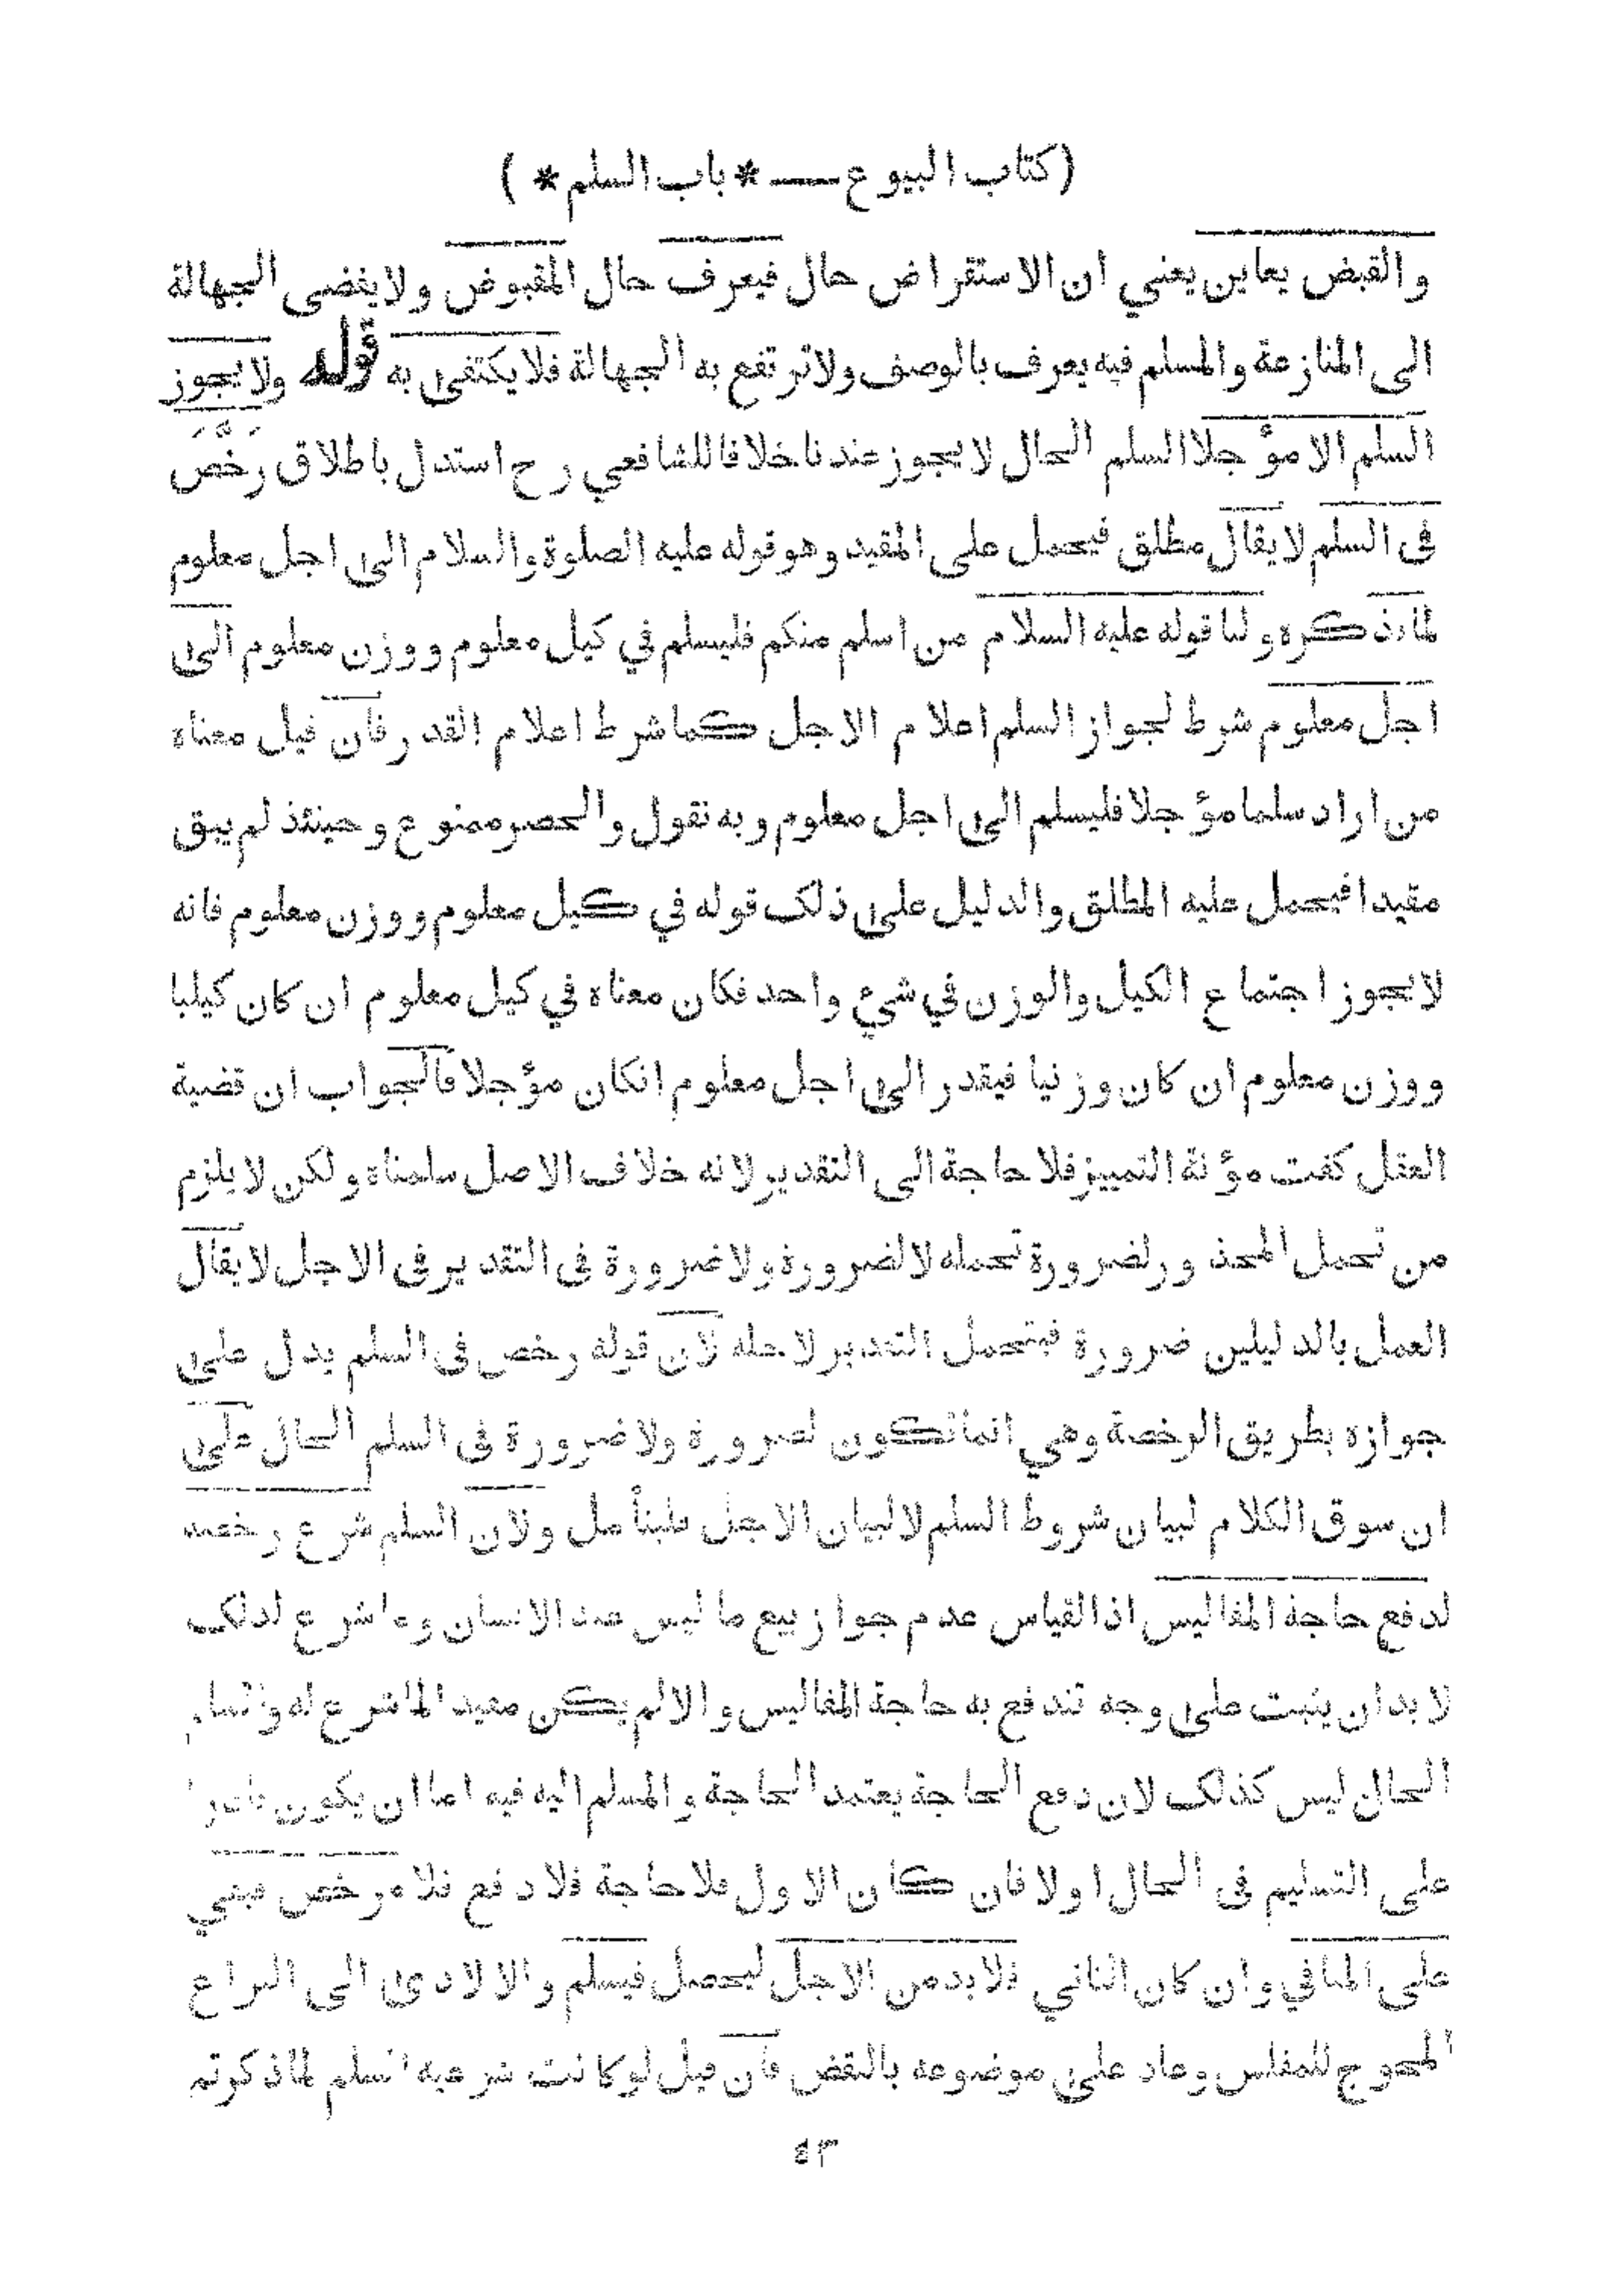 (كتاب البيوع — * باب السلم * )
والقبض يعاين يعني ان الاستقراض حال فيعرف حال المقبوض ولا يفضى الجهالة
الى المنازعة والمسلم فيه يعرف بالوصف ولا ترتفع به الجهالة فلا يكتفى به قوله ولا يجوز
السلم الا مؤجلا السلم الحال لا يجوز عندنا خلافا للشافعي رح استدل باطلاق رَخَّصَ
فى السلم لا يقال مطلق فيحمل على المقيد وهو قوله عليه الصلوة والسلام الى اجل معلوم
لما نذكره ولنا قوله عليه السلام من اسلم منكم فليسلم في كيل معلوم ووزن معلوم الى
اجل معلوم شرط لجواز السلم اعلام الاجل كما شرط اعلام القدر فان قيل معناه
من اراد سلما مؤجلا فليسلم الى اجل معلوم وبه نقول والحصر ممنوع وحينئذ لم يبق
مقيدا فيحمل عليه المطلق والدليل على ذلك قوله في كيل معلوم ووزن معلوم فانه
لا يجوز اجتماع الكيل والوزن في شيء واحد فكان معناه في كيل معلوم ان كان كيليا
ووزن معلوم ان كان وزنيا فيقدر الى اجل معلوم انكان مؤجلا فالجواب ان قضية
العقل كفت مؤنة التمييز فلا حاجة الى التقدير لانه خلاف الاصل سلمناه ولكن لا يلزم
من تحمل المحذور لضرورة تحمله لا لضرورة ولا ضرورة فى التقدير فى الاجل لا يقال
العمل بالدليلين ضرورة فيتحمل التقدير لاجله لان قوله رخص فى السلم يدل على
جوازه بطريق الرخصة وهي انما تكون لضرورة ولا ضرورة فى السلم الحال على
ان سوق الكلام لبيان شروط السلم لا لبيان الاجل فليتأمل ولان السلم شرع رخصة
لدفع حاجة المفاليس اذ القياس عدم جواز بيع ما ليس عند الانسان وما شرع لذلك
لا بد ان يثبت على وجه تندفع به حاجة المفاليس والا لم يكن مفيدا لما شرع له
الحال ليس كذلك لان دفع الحاجة يعتمد الحاجة والمسلم اليه فيه اما ان يكون قادرا
على التسليم فى الحال او لا فان كان الاول فلا حاجة فلا دفع فلا مرخص فبقي
على المنافي وان كان الثاني فلا بد من الاجل ليحصل فيسلم والا لادى الى النزاع
المحوج للمفلس وعاد على موضوعه بالنقض فان قيل لو كانت شرعية السلم لما ذكرتم
٥٣